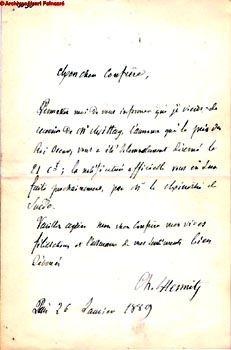 © Archives Henri Poincaré
Mon cher Confrère,
Permettez moi de vous informer que je viens de
recevoir de Mr Mittag l'annonce que le prix du
Roi Oscar, vous a été solennellement décerné le
21 ct; la notification officielle vous en sera
faite prochainement, par Mr le ministre de
Suède.
Veuillez agréer mon cher Confrère mes vives
félicitations et l'assurance de mes sentiments bien
dévoués
Ch. Hermite
26 Janvier 1889